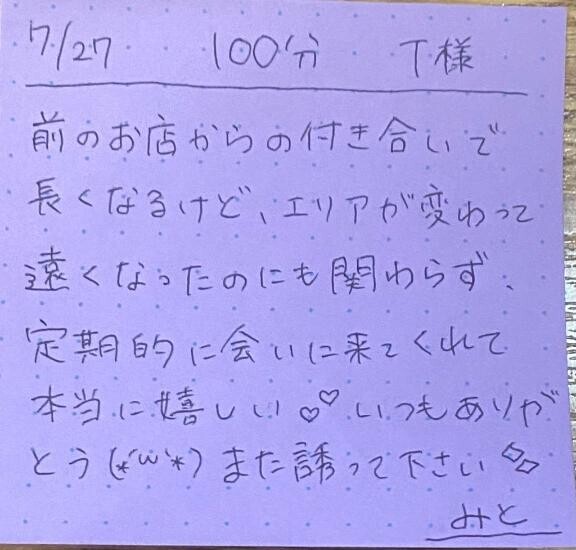 7/27 100分 T様
前のお店からの付き合いで
長くなるけど、エリアが変わって
遠くなったのにも関わらず、
定期的に会いに来てくれて
本当に嬉しい♡♡いつもありが
とう(*´ω`*)また誘って下さい
みと